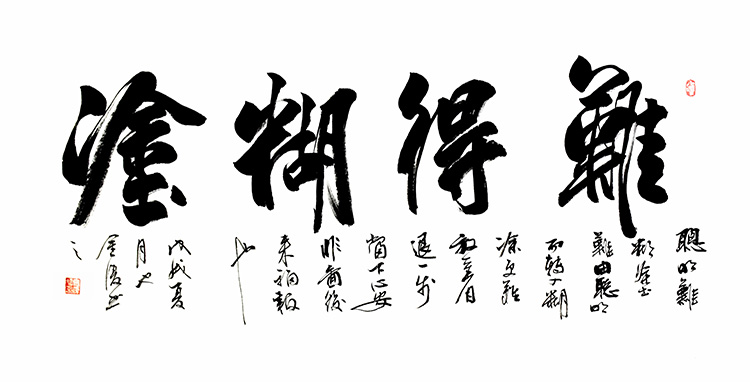 難得糊塗
聰明難
糊塗
難由聰明
而轉入糊
塗更難
放一着
退一步
當下心安
非圖後
來福報
也
戊戌夏
月
之